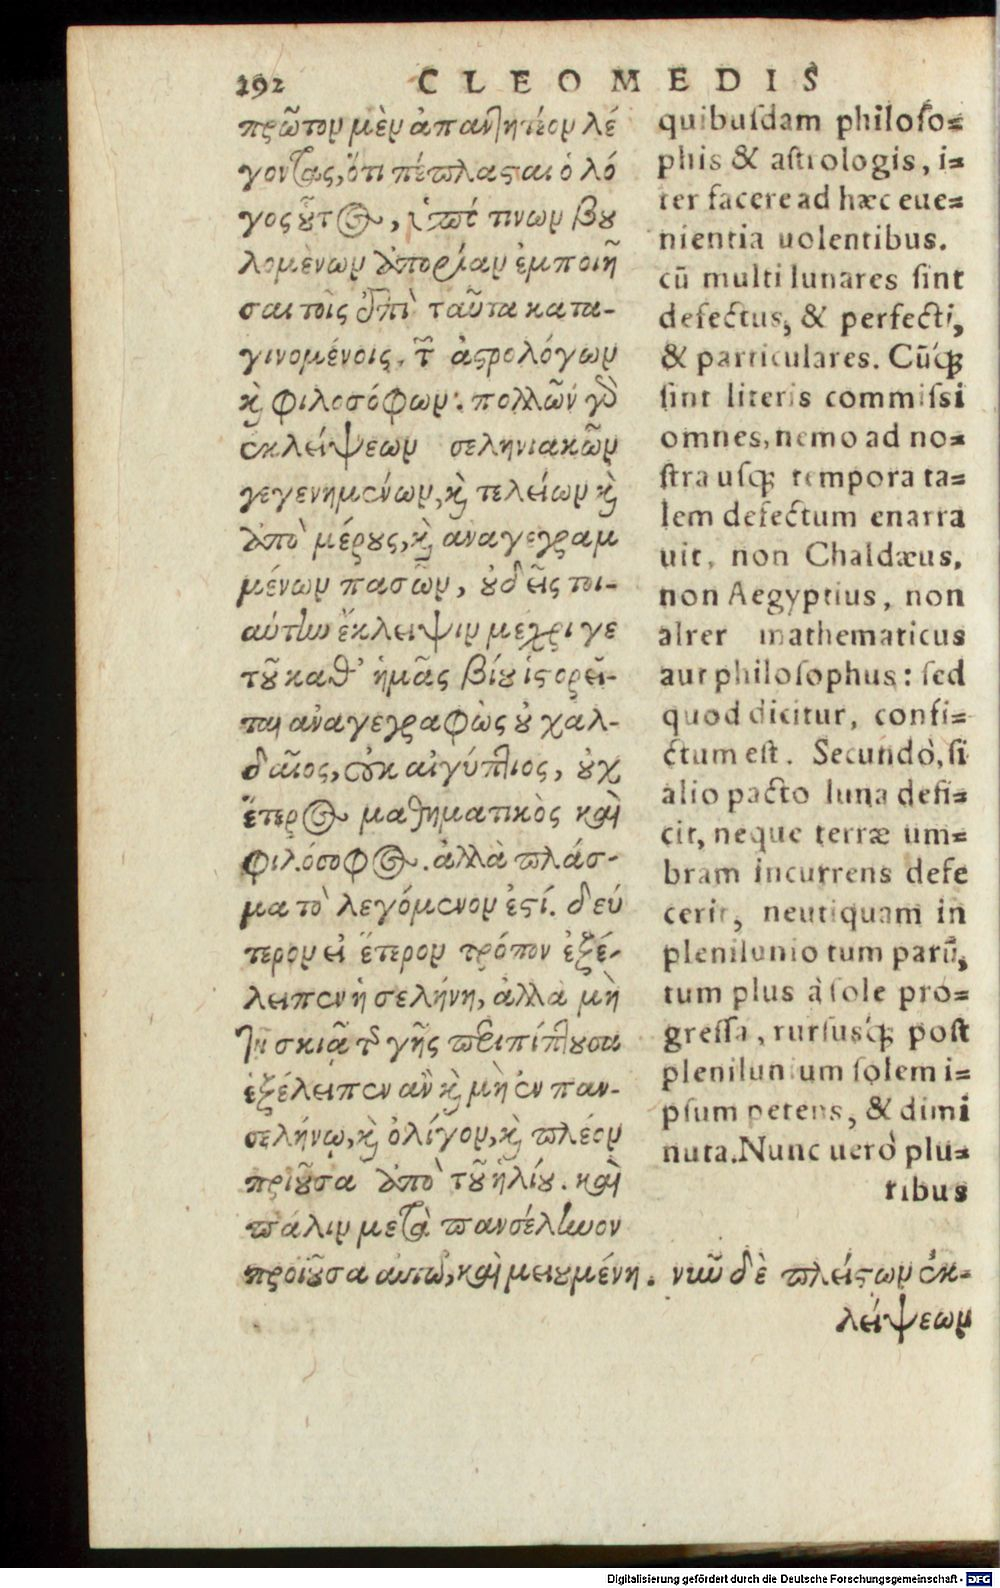 292 CLEOMEDIS
πρῶτον μὲν ἀπαντητέον λέ
γοντας, ὅτι πέπλασται ὁ λό
γος οὗτος, ὑπό τινων βου
λομένων ἀπορίαν ἐμποιῆ
σαι τοῖς ἐπὶ ταῦτα κατα-
γινομένοις, τῶν ἀστρολόγων
καὶ φιλοσόφων. πολλῶν γὰρ
ἐκλείψεων σεληνιακῶν
γεγενημένων, καὶ τελείων καὶ
ἀπὸ μέρους, καὶ ἀναγεγραμ
μένων πασῶν, οὐδεὶς τοι-
αύτην ἔκλειψιν μέχρι γε
τοῦ καθ' ἡμᾶς βίου ἱστορεῖ-
ται ἀναγεγραφὼς οὐ χαλ-
δαῖος, οὐκ αἰγύπτιος, οὐχ
ἕτερος μαθηματικὸς καὶ
φιλόσοφος. ἀλλὰ πλάσ-
μα τὸ λεγόμενον ἐστί. δεύ
τερον εἰ ἕτερον τρόπον ἐξέ-
λειπεν ἡ σελήνη, ἀλλὰ μὴ
τῇ σκιᾷ τῆς γῆς περιπίπτουσα
ἐξέλειπεν ἂν καὶ μὴ ἐν παν-
σελήνῳ, καὶ ὀλίγον, καὶ πλέον
πριοῦσα ἀπὸ τοῦ ἡλίου. καὶ
πάλιν μετὰ πανσέληνον
προϊοῦσα αὐτῷ, καὶ μειουμένη. νυνὶ δὲ πλείστων ἐκ-
λείψεων
quibusdam philoso=
phis & astrologis, i=
ter facere ad hæc eue=
nientia uolentibus.
cū multi lunares sint
defectus, & perfecti,
& particulares. Cūq́;
sint literis commissi
omnes, nemo ad no=
stra usq; tempora ta=
lem defectum enarra
uit, non Chaldæus,
non Aegyptius, non
alter mathematicus
aut philosophus: sed
quod dicitur, confi=
ctum est. Secundò, si
alio pacto luna defi=
cit, neque terræ um=
bram incurrens defe
cerit, neutiquam in
plenilunio tum parū,
tum plus à sole pro=
gressa, rursusq́; post
plenilunium solem i=
psum petens, & dimi
nuta. Nunc uerò plu=
ribus
Digitalisierung gefördert durch die Deutsche Forschungsgemeinschaft - DFG